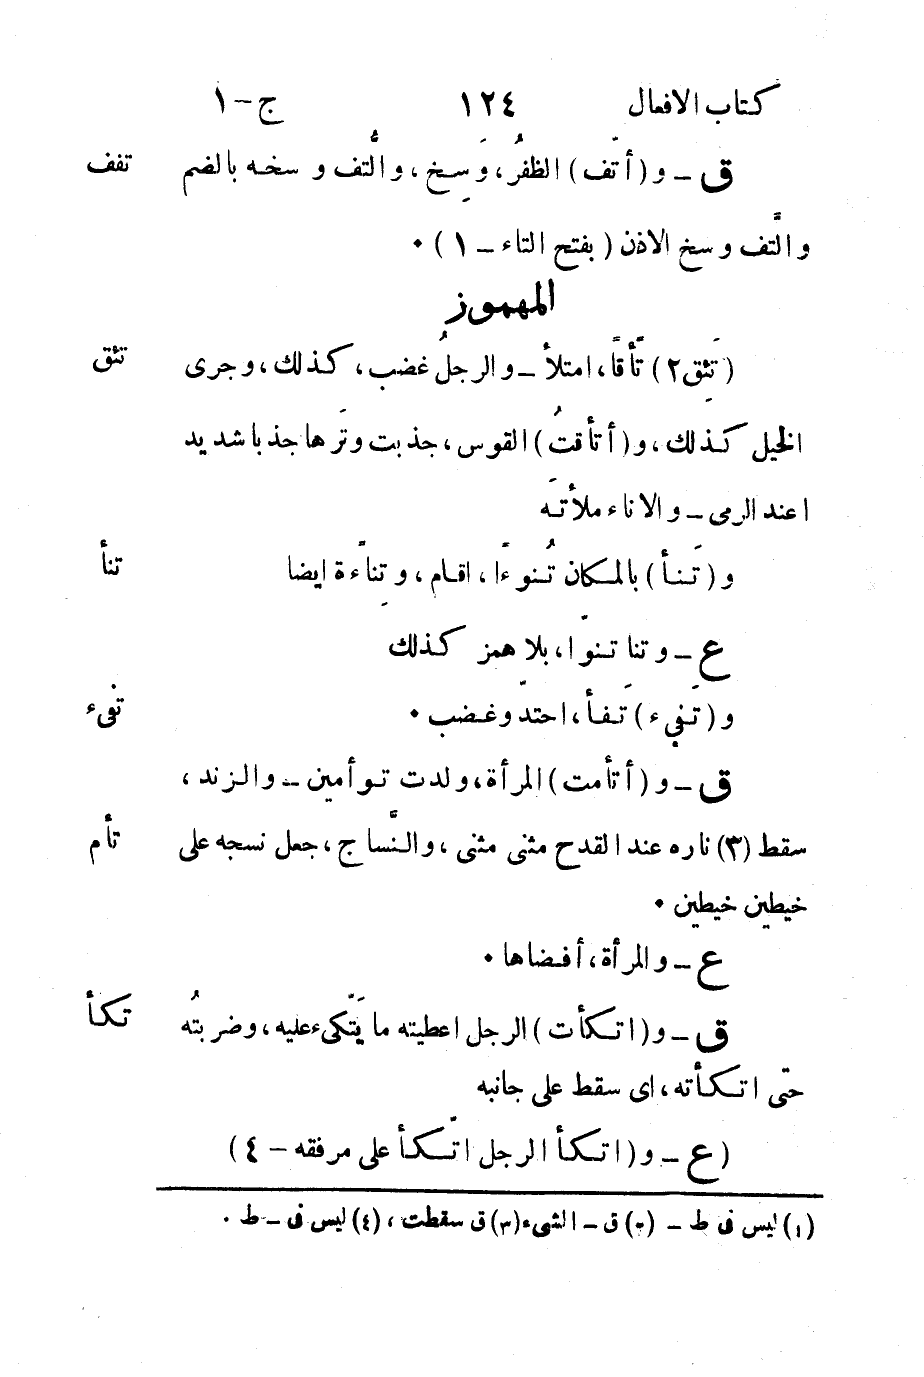 كتاب الافعال ١٢٤ ج-١
ق – و (أتّف) الظفرُ، وَسِخ، والُّتف وسخه بالضم تفف
والَّتف وسخ الاذن (بفتح التاء – ١) ٠
المهموز
(تَئِق ٢) تَّأقًا، امتلأ – والرجلُ غضب، كذلك، وجرى تئق
الخيل كذلك، و(أتأقتُ) القوس، جذبت وتَرها جذبا شديد
ا عند الرمى – والاناء ملأتَه
و (تَنأ) بالمكان تُنوءًا، اقام، وتِناءًة ايضا تنأ
ع – وتنا تنوّا، بلا همز كذلك
و (تَفِىء) تَفأ، احتدّ وغضب ٠ تفىء
ق – و (أتأمت) المرأة، ولدت توأمين – والزند،
سقط (٣) ناره عند القدح مثنى مثنى، والنَّساج، جعل نسجه على تأم
خيطين خيطين ٠
ع – والمرأة، أفضاها ٠
ق – و(اتكأت) الرجل اعطيته ما يَتّكىء عليه، وضربتُه تكأ
حتّى اتكأته، اى سقط على جانبه
(ع – و(اتكأ الرجل اتّكأ على مرفقه – ٤)
(١) ليس فى ط – (٢) ق – الشىء (٣) ق سقطت، (٤) ليس فى – ط ٠